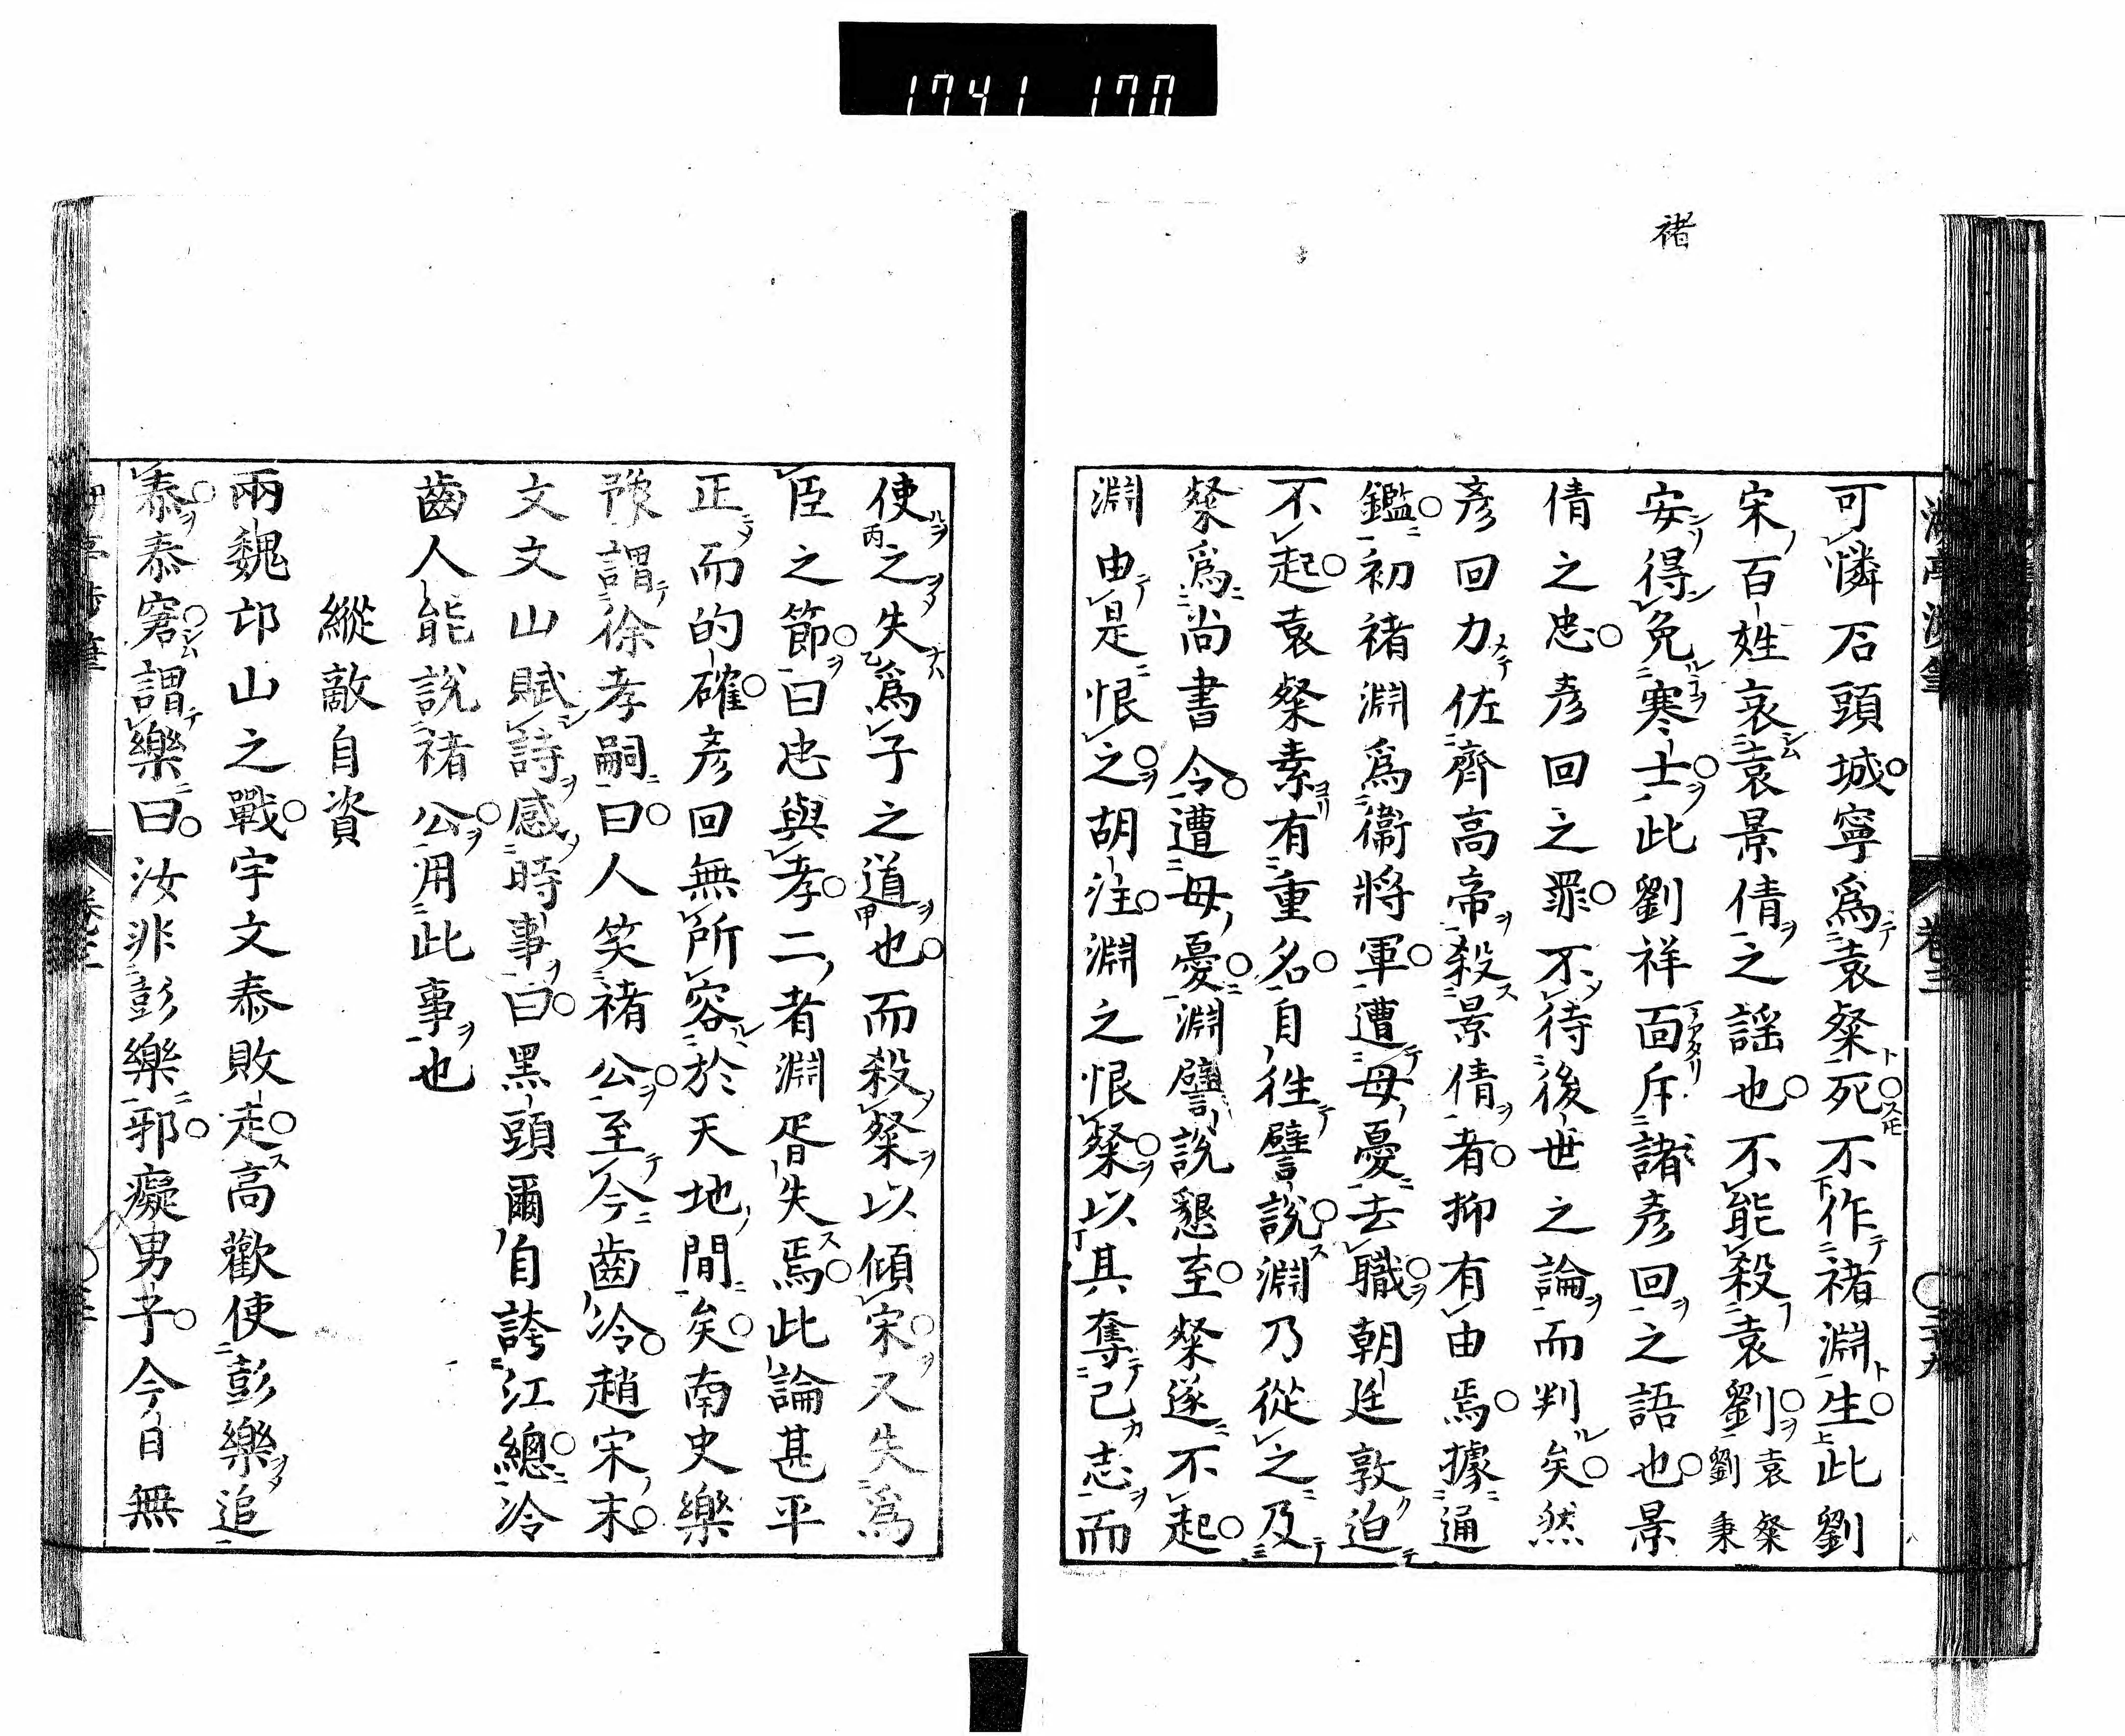 1741 170
褚
可憐石頭城寧爲袁粲死不作褚淵生此劉
宋百姓哀袁景倩之謡也不能殺袁劉袁粲劉秉
安得免寒士此劉祥面斥諸彦回之語也景
倩之忠彦回之罪不待後世之論而判矣然
彦回力佐齊高帝殺景倩者抑有由焉據通
鑑初褚淵爲衞將軍遭母憂去職朝廷敦迫
不起袁粲素有重名自徃譬説淵乃從之及
粲爲尚書令遭母憂淵譬説懇至粲遂不起
淵由是恨之胡注淵之恨粲以其奪己志而
使之失爲子之道也而殺粲以傾宋又失爲
臣之節曰忠與孝二者淵胥失焉此論甚平
正而的確彦回無所容於天地間矣南史樂
豫謂徐孝嗣曰人笑褚公至今齒冷趙宋末
文文山賦詩感時事曰黑頭爾自誇江總冷
齒人能説褚公用此事也
縱敵自資
兩魏邙山之戰宇文泰敗走高歡使彭樂追
泰泰窘謂樂曰汝非彭樂邪癡男子今日無